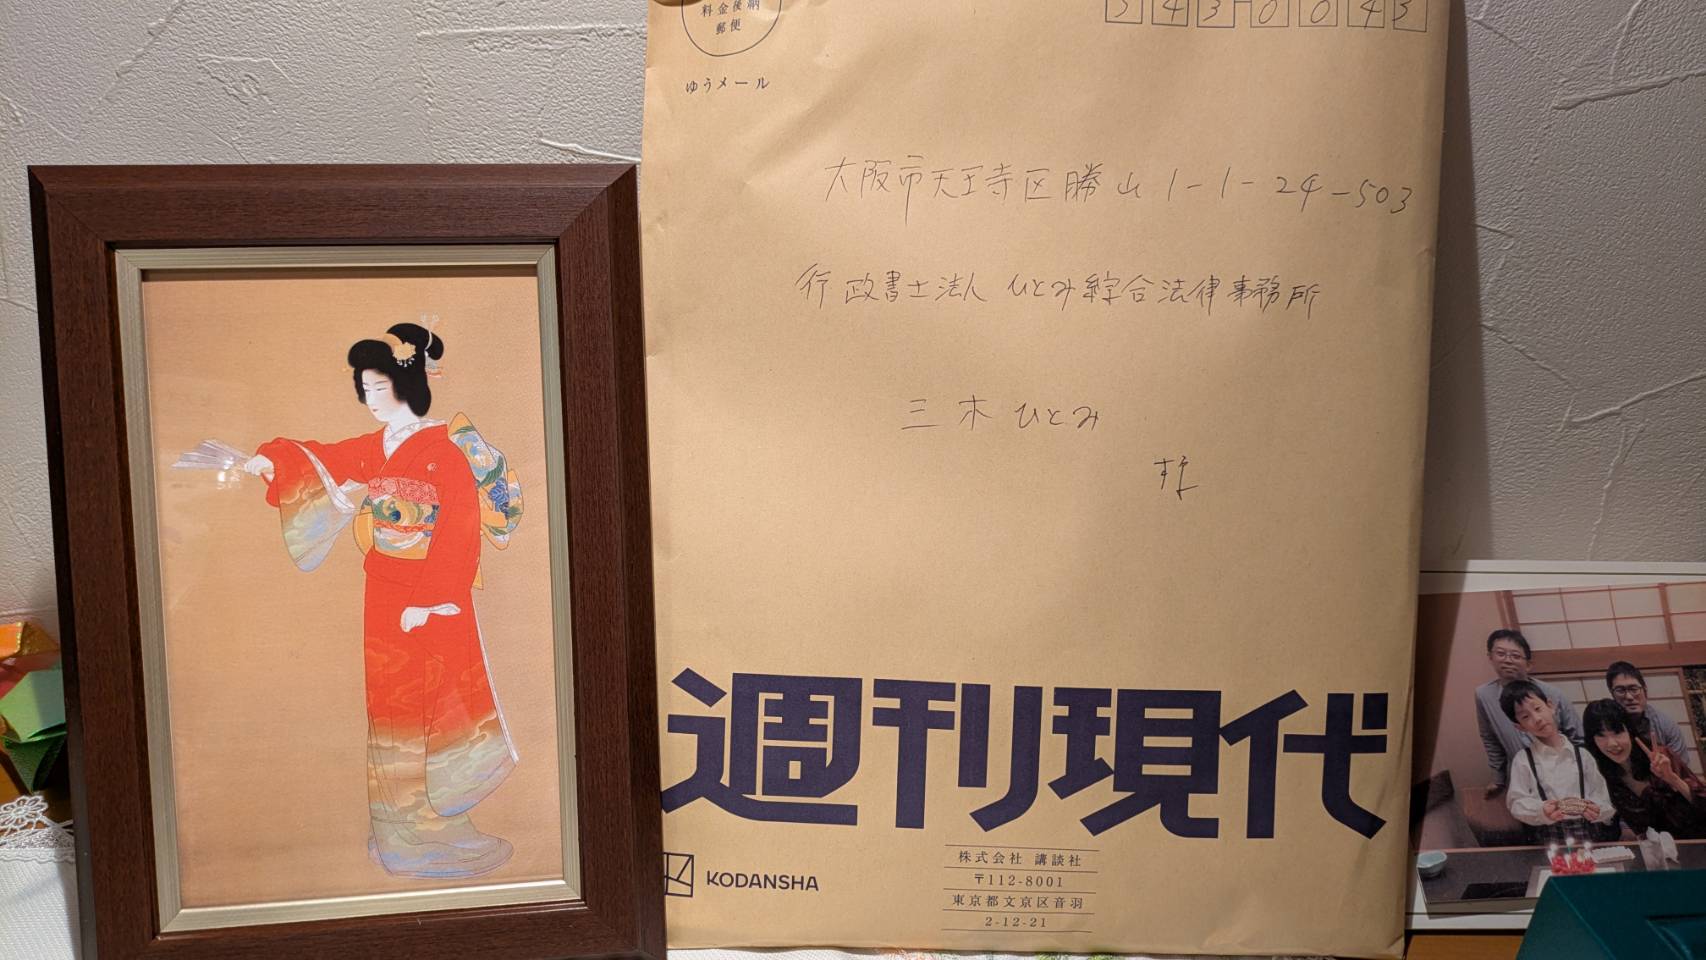 料金後納
郵便
ゆうメール
543-0043
大阪市天王寺区勝山1-1-24-503
行政書士法人 ひとみ綜合法律事務所
三木ひとみ
様
週刊現代
KODANSHA
株式会社 講談社
〒112-8001
東京都文京区音羽
2-12-21